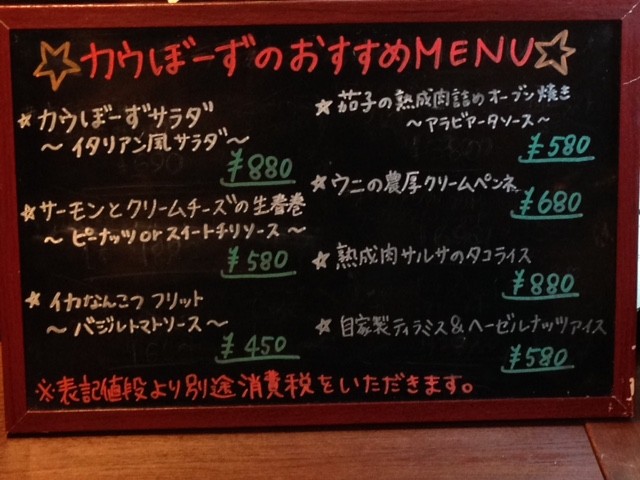 カウぼーずのおすすめMENU
★カウぼーずサラダ
～イタリアン風サラダ～
¥880
★サーモンとクリームチーズの生春巻
～ピーナッツorスイートチリソース～
¥580
★イカなんこつフリット
～バジルトマトソース～
¥450
★茄子の熟成肉詰めオーブン焼き
～アラビアータソース～
¥580
★ウニの濃厚クリームペンネ
¥680
★熟成肉サルサのタコライス
¥880
★自家製ティラミス&ヘーゼルナッツアイス
¥580
※表記値段より別途消費税をいただきます。